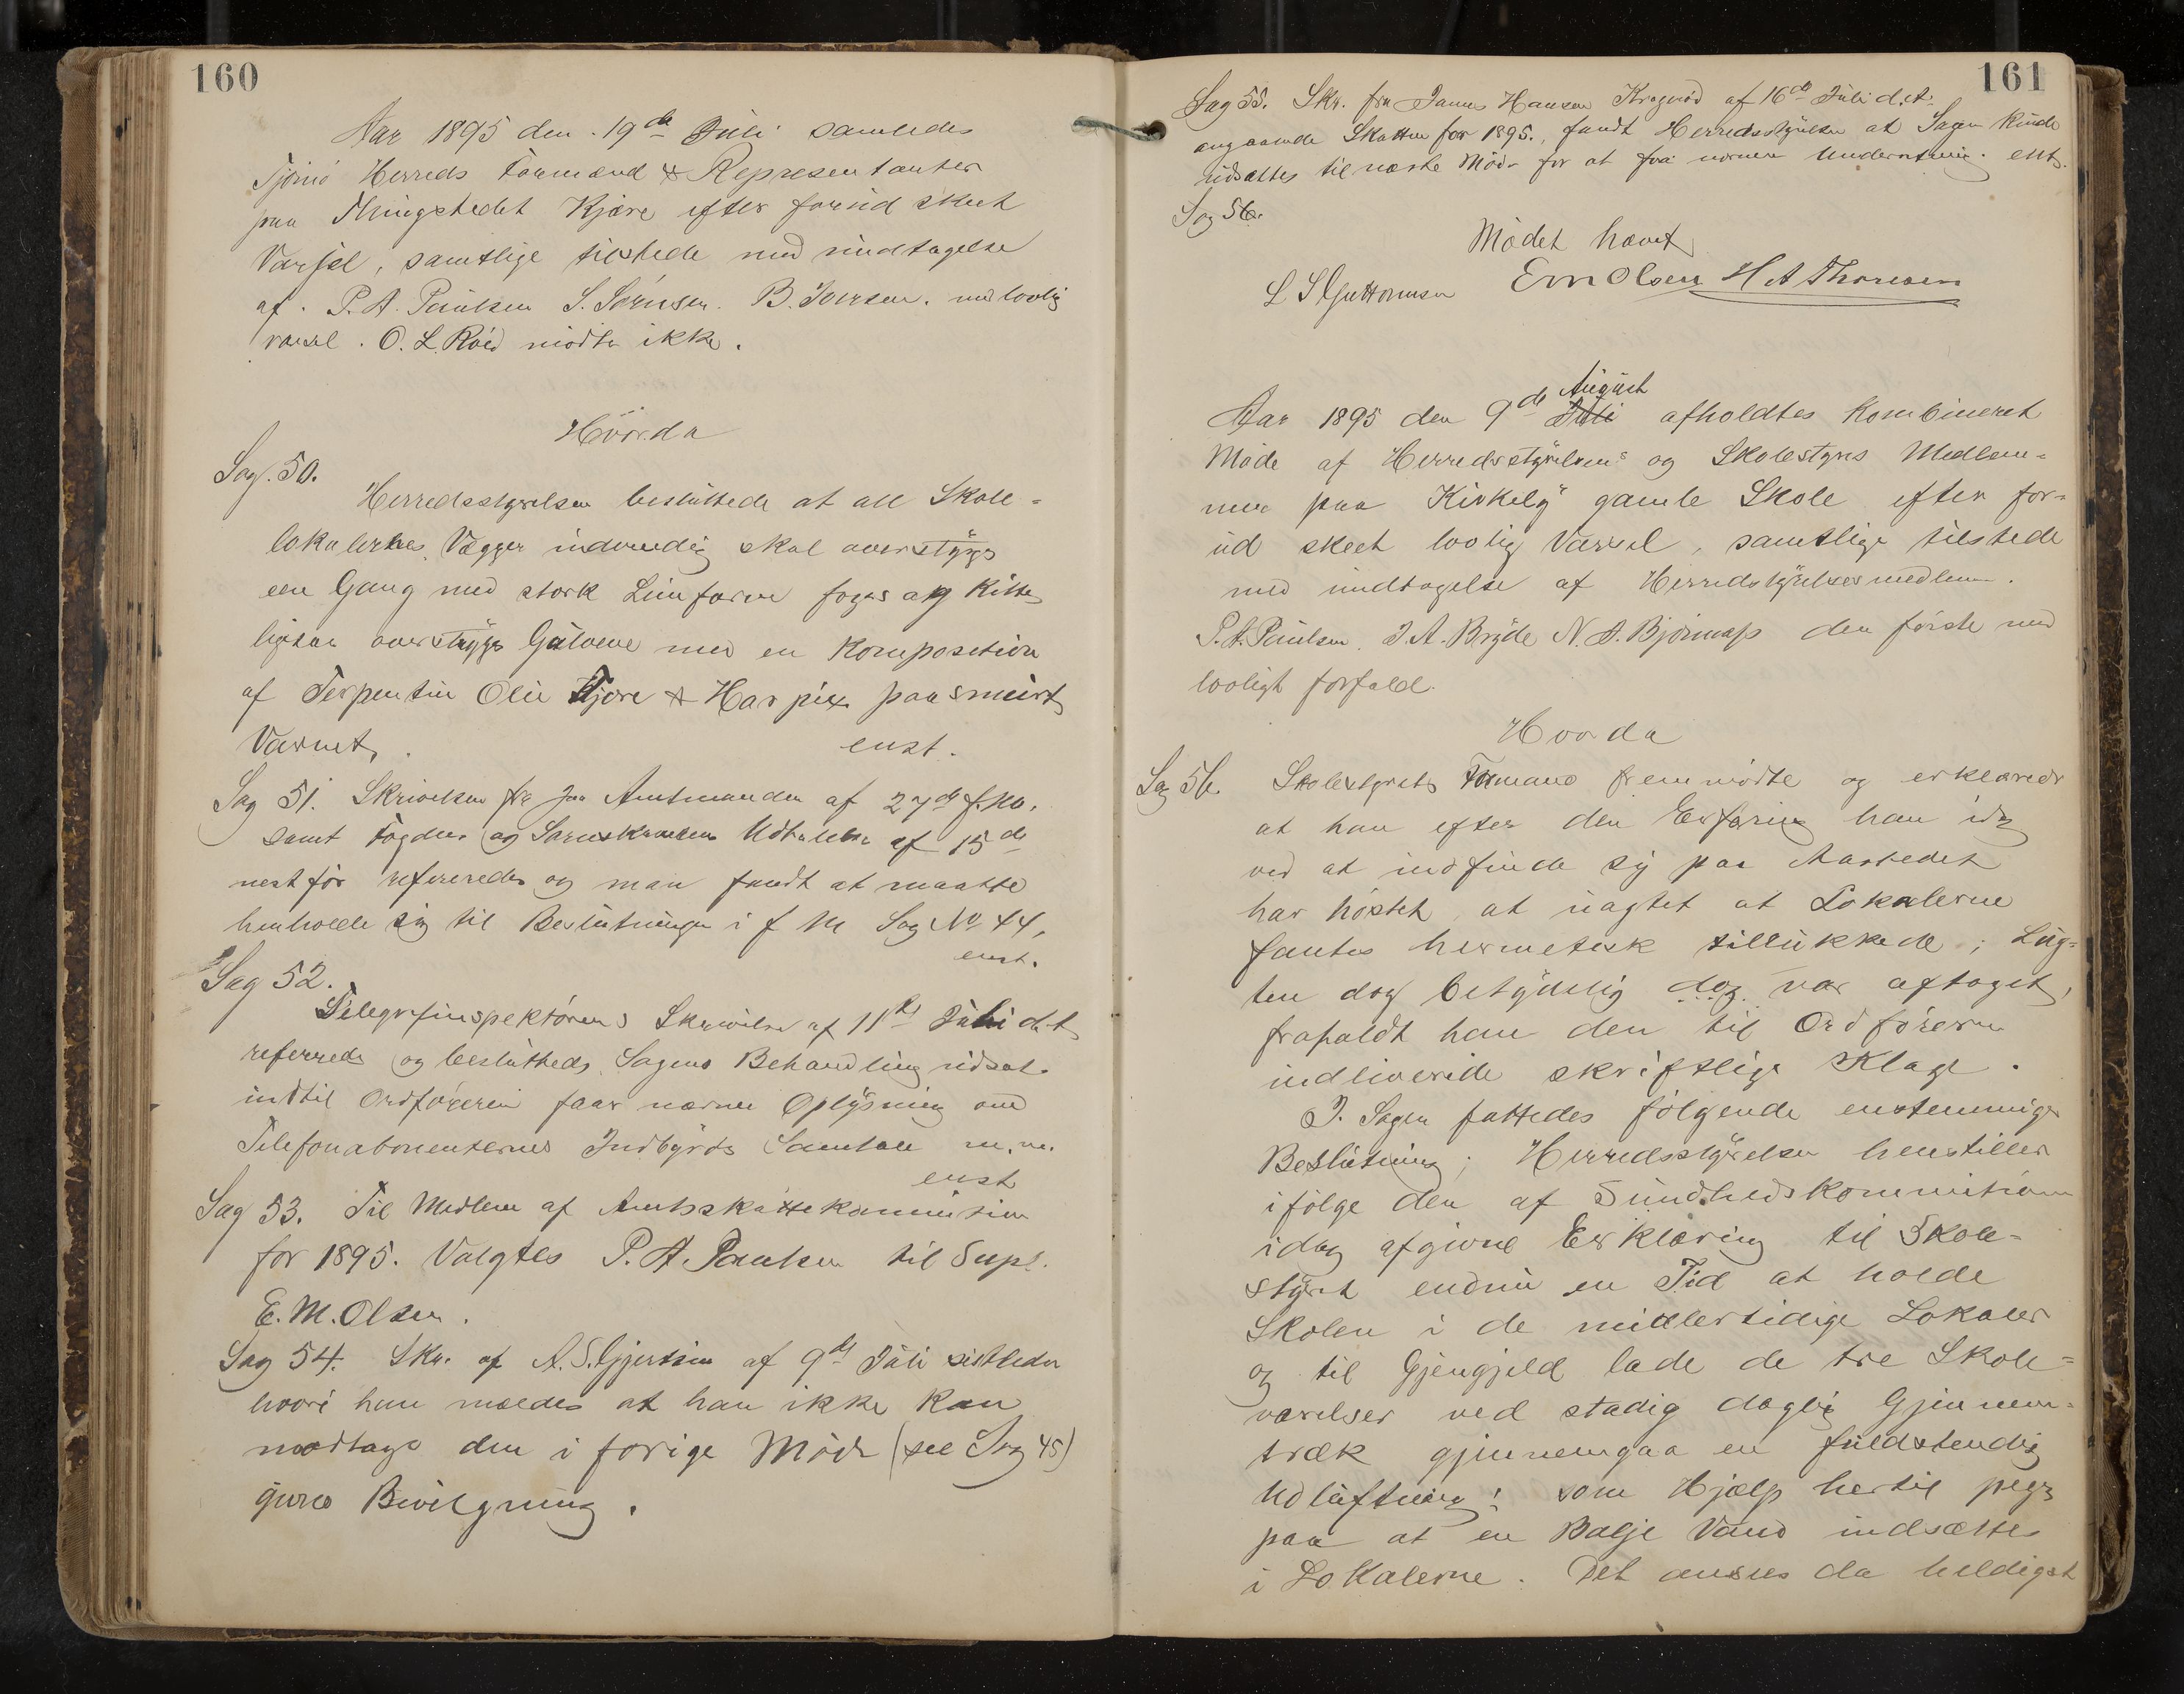 160
Aar 1895 den 19de Juli samledes
Tjömö Herreds Formænd & Representanter
paa Thingstedet Kjære efter forud skeet
Varsel, samtlige tilstede med undtagelse
af P. A. Paulsen S. Sörnsen. B. Iversen. med lovlig
varsel. O. L. Röed mödte ikke.
Hvorda
Sag. 50.
Herredsstyrelsen besluttede at all Skole-
lokalernes Vægger indvendig skal overstryges
een Gang med stærk Limfarve foges og Kittes
ligesaa overstryges Gulvene med en Komposition
af Terpentin Olie Tjære & Harpix paasmurt
Varmt. enst.
Sag 51. Skrivelsen fra Amtmanden af 27de f. M.
samt Fogdens og Sorenskriverens Udtalelse af 15de
nest för refereredes og man fandt at maatte
henholde sig til Beslutningen i f M Sag No 44,
enst.
Sag 52.
Telegrafinspektörens Skrivelse af 11te Juli d. A
refererede og besluttedes Sagens Behandling udsat.
indtil Ordföreren faar nærmere Oplysning om
Telefonabonenternes Indbyrds Samtale m. m.
enst
Sag 53. Til Medlem af Amtsskattekommision
for 1895. Valgtes P. A. Paulsen til Supl.
E. M. Olsen.
Sag 54. Skr. af A. S. Gjertsen af 9de Juli sistleden
hvori han melder at han ikke Kan
modtage den i forige Möde (see Sag 45)
givne Bevilgning.
161
Sag 55. Skr. fra Hansen af 16de Juli d. A.
angaaende Skatten for 1895., fandt Herredsstyrelsen at Sagen Kunde
udsættes til næste Möde for at faa nærmere Underretning. enst.
Sag 56.
Mödet hævet
L S Guttormsen Em Olsen H A Thoresen
August
Aar 1895 den 9de Juli afholdtes Kombineret
Möde af Herredsstyrelsens og Skolestyrs Medlem-
mer paa Kirkely gamle Skole efter for-
ud skeet lovlig Varsel, samtlige tilstede
med undtagelse af Herredstyrelsesmedlem.
P. A. Paulsen. J. A. Bryde N. A. Bjönnæs den förste med
lovligt forfald.
Hvorda
Sag 56. Skolestyrets Formand fremmödte og erklærede
at han efter den Erfaring han idag
ved at indfinde sig paa Aastedet
har höstet, at uagtet at Lokalerne
fantes hermetisk tillukkede; Lug-
ten dog betydelig dog var aftaget,
frafaldt han den til Ordföreren
indleverede skriftlige Klage.
I. Sagen fattedes fölgende enstemmige
Beslutning; Herredsstyrelsen henstiller
ifölge den af Sundhedskommisionen
idag afgivne Erklæring til Skole-
styret endnu en Tid at holde
Skolen i de midlertidige Lokaler
og til Gjengjeld lade de tre Skole-
værelser ved stadig daglig Gjennem-
træk gjennemgaa en fuldstendig
Udluftning! som Hjælp hertil peges
paa at en Balje Vand indsættes
i Lokalerne. Det ansees da heldigst